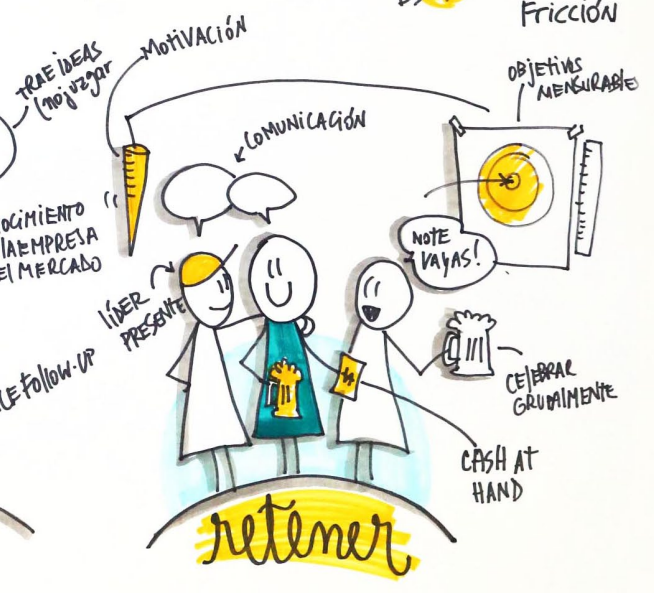 FRICCIÓN
TRAE IDEAS
(no juzgar
MOTIVACIÓN
OBJETIVOS
MENSURABLES
COMUNICACIÓN
NOTE
VAYAS!
LA EMPRESA
EL MERCADO
LÍDER
PRESENTE
FOLLOW-UP
CELEBRAR
GRUPALMENTE
CASH AT
HAND
retener